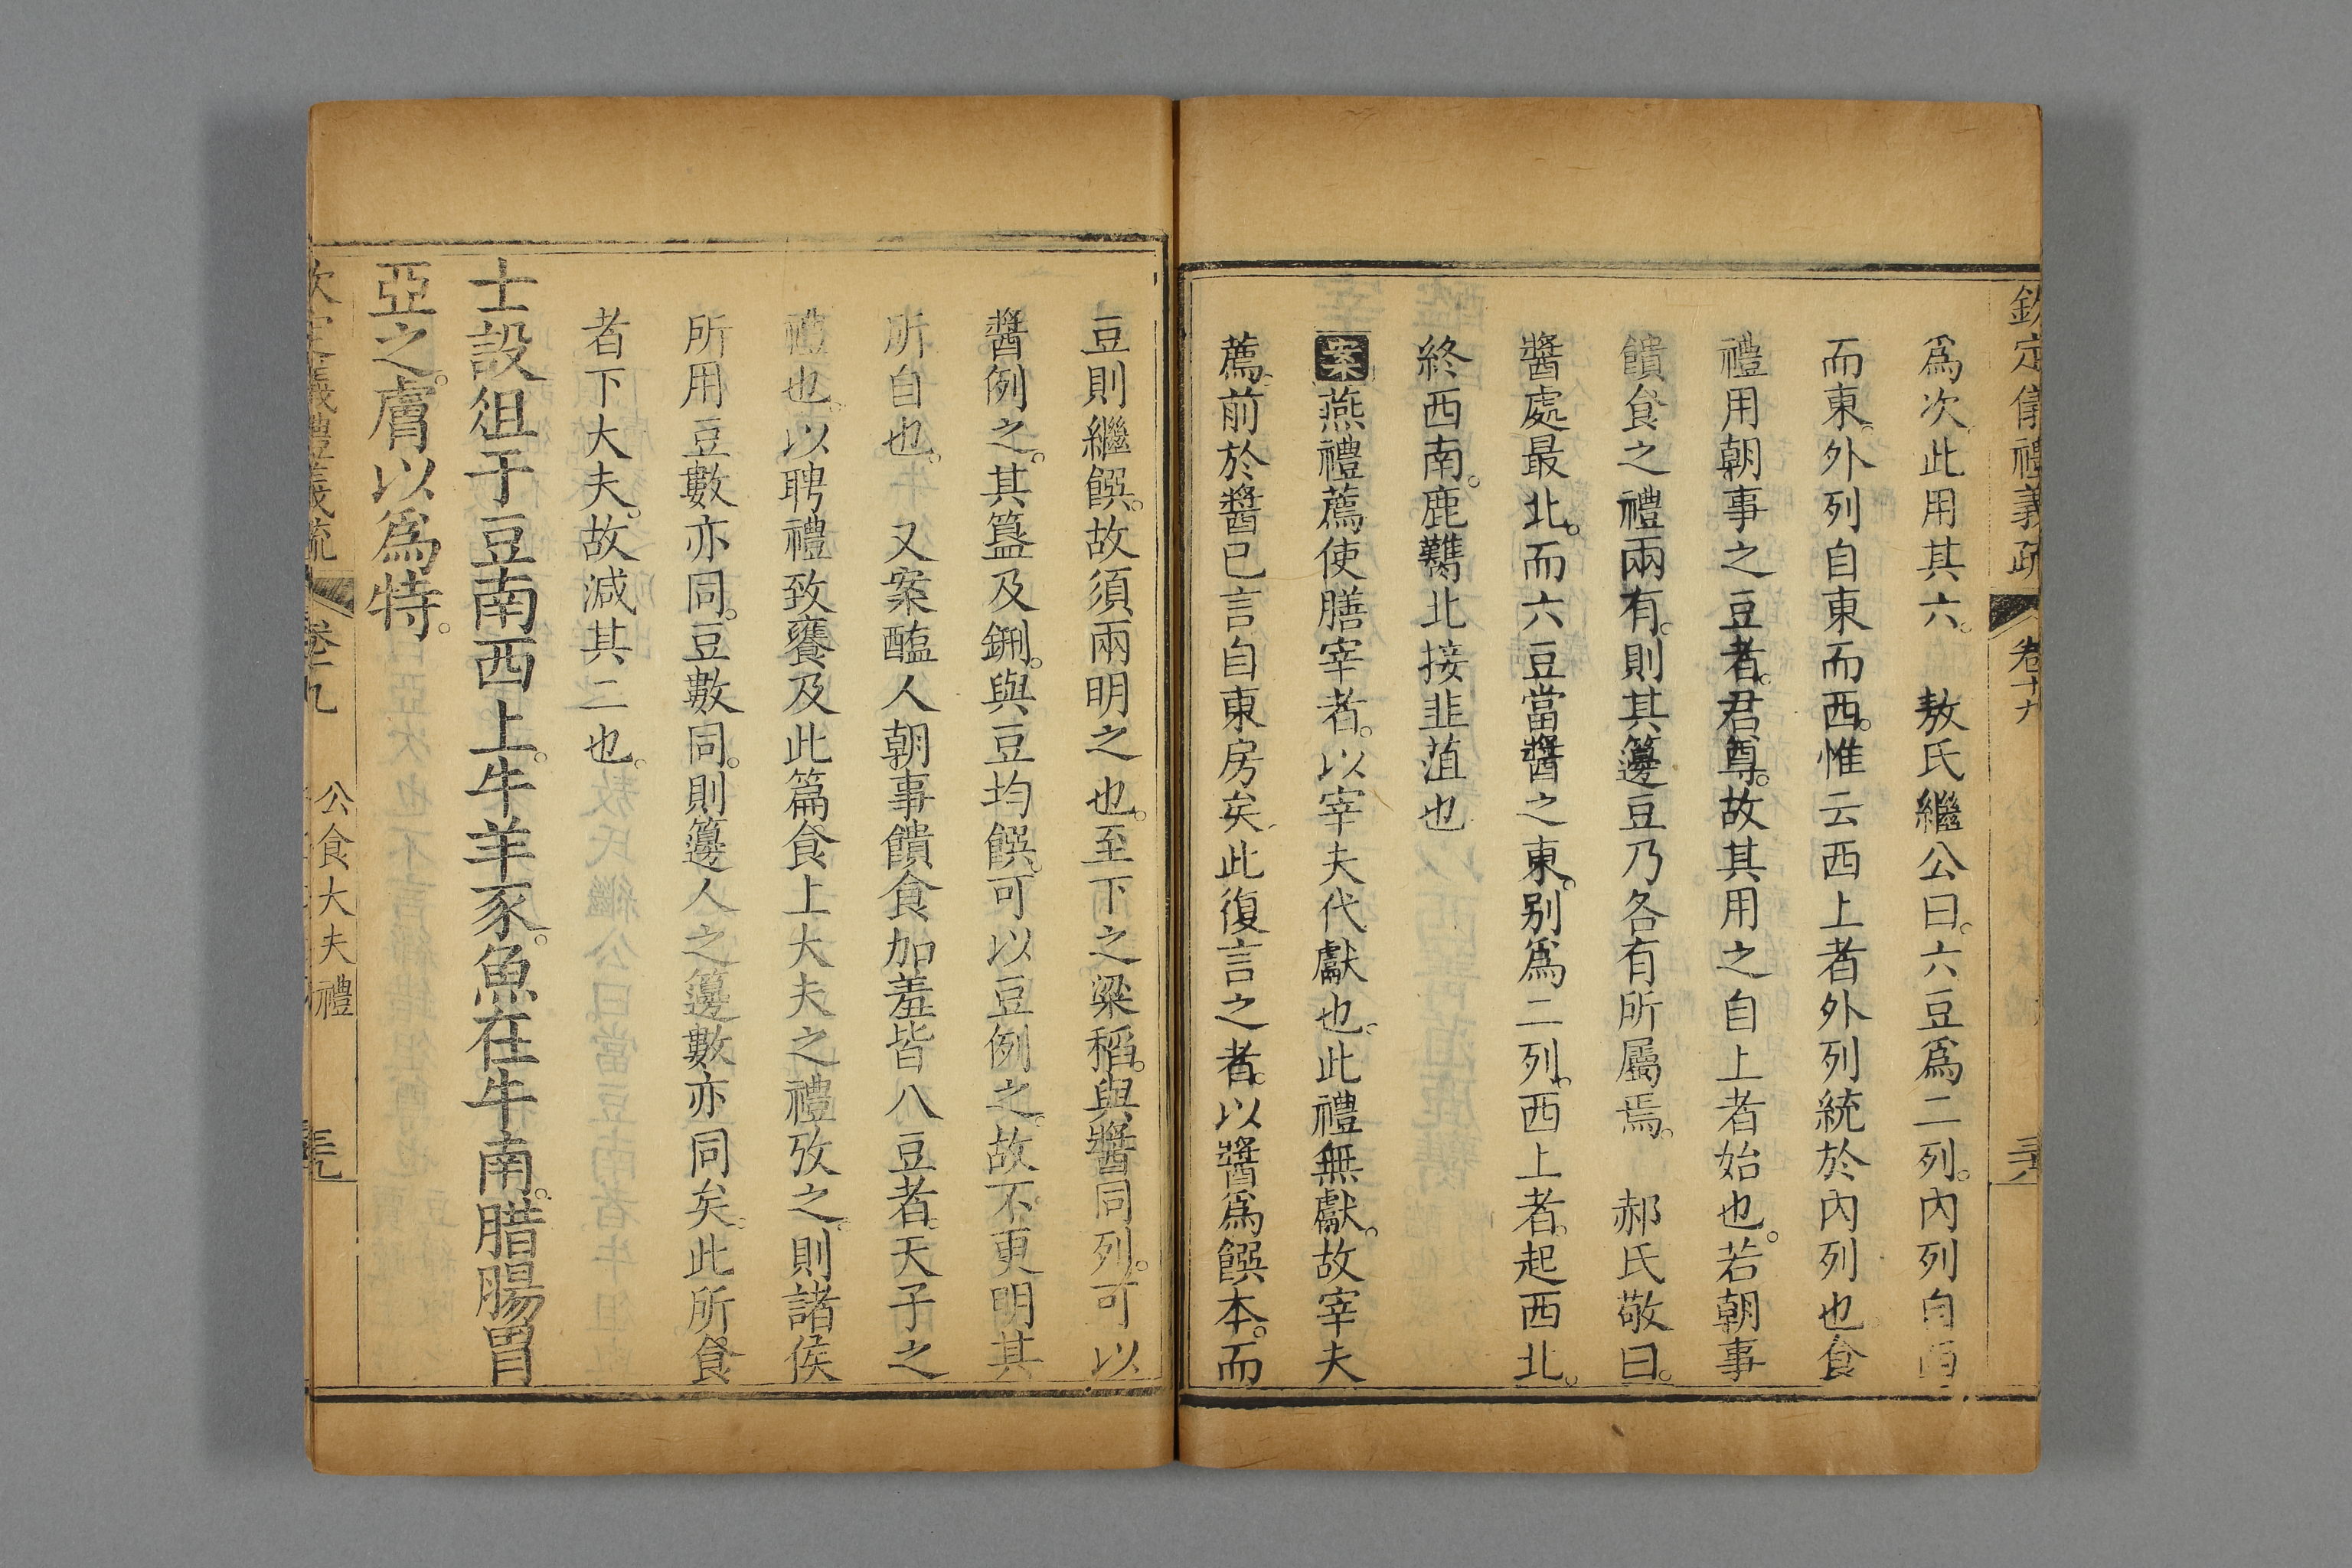 欽定儀禮義疏 卷十九 三十八
爲次此用其六。 敖氏繼公曰。六豆爲二列。內列自西
而東。外列自東而西。惟云西上者外列統於內列也食
禮用朝事之豆者。君尊。故其用之自上者始也。若朝事
饋食之禮兩有。則其籩豆乃各有所屬焉。 郝氏敬曰。
醬處最北。而六豆當醬之東。别爲二列。西上者。起西北。
終西南。鹿臡北接韭菹也
案燕禮薦使膳宰者。以宰夫代獻也。此禮無獻。故宰夫
薦。前於醬已言自東房矣。此復言之者。以醬爲饌本。而
豆則繼饌。故須兩明之也。至下之粱稻。與醬同列。可以
醬例之。其簋及鉶。與豆均饌。可以豆例之。故不更明其
所自也。 又案醢人朝事饋食加羞皆八豆者。天子之
禮也。以聘禮致饔及此篇食上大夫之禮攷之。則諸侯
所用豆數亦同。豆數同。則籩人之籩數亦同矣。此所食
者下大夫。故減其二也。
士設俎于豆南西上。牛羊豕。魚在牛南。腊腸胃
亞之。膚以爲特。
欽定儀禮義疏 卷十九 公食大夫禮 三十九